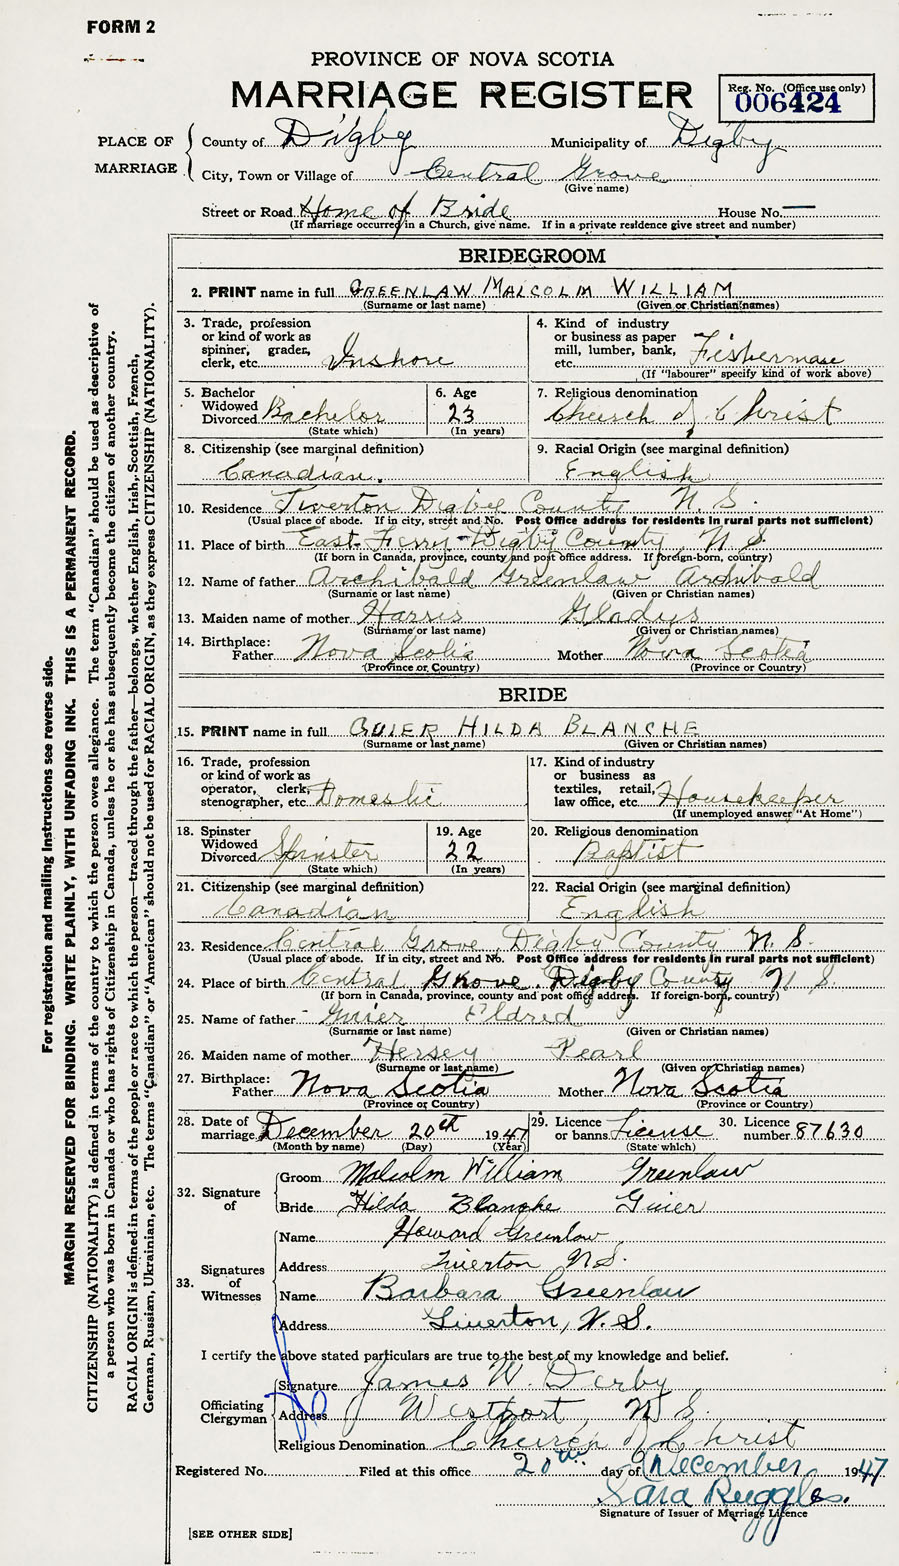 FORM 2
PROVINCE OF NOVA SCOTIA
MARRIAGE REGISTER
Reg. No. (Office use only)
006424
PLACE OF MARRIAGE
County of Digby Municipality of Digby
City, Town or Village of Central Grove
(Give name)
Street or Road Home of Bride House No. —
(If marriage occurred in a Church, give name. If in a private residence give street and number)
BRIDEGROOM
2. PRINT name in full GREENLAW MALCOLM WILLIAM
(Surname or last name) (Given or Christian names)
3. Trade, profession or kind of work as spinner, grader, clerk, etc. Inshore
4. Kind of industry or business as paper mill, lumber, bank, etc. Fisherman
(If "labourer" specify kind of work above)
5. Bachelor Widowed Divorced Bachelor
(State which)
6. Age 23
(In years)
7. Religious denomination
Church of Christ
8. Citizenship (see marginal definition)
Canadian.
9. Racial Origin (see marginal definition)
English
10. Residence Tiverton Digby County N. S.
(Usual place of abode. If in city, street and No. Post Office address for residents in rural parts not sufficient)
11. Place of birth East Ferry Digby County N S
(If born in Canada, province, county and post office address. If foreign-born, country)
12. Name of father Archibald Greenlaw Archibald
(Surname or last name) (Given or Christian names)
13. Maiden name of mother Harris Gladys
(Surname or last name) (Given or Christian names)
14. Birthplace: Father Nova Scotia Mother Nova Scotia
(Province or Country) (Province or Country)
BRIDE
15. PRINT name in full GUIER HILDA BLANCHE
(Surname or last name) (Given or Christian names)
16. Trade, profession or kind of work as operator, clerk, stenographer, etc. Domestic
17. Kind of industry or business as textiles, retail, law office, etc. Housekeeper
(If unemployed answer "At Home")
18. Spinster Widowed Divorced Spinster
(State which)
19. Age 22
(In years)
20. Religious denomination
Baptist
21. Citizenship (see marginal definition)
Canadian
22. Racial Origin (see marginal definition)
English
23. Residence Central Grove, Digby County N. S.
(Usual place of abode. If in city, street and No. Post Office address for residents in rural parts not sufficient)
24. Place of birth Central Grove, Digby County N S.
(If born in Canada, province, county and post office address. If foreign-born, country)
25. Name of father Guier Eldred
(Surname or last name) (Given or Christian names)
26. Maiden name of mother Hersey Pearl
(Surname or last name) (Given or Christian names)
27. Birthplace: Father Nova Scotia Mother Nova Scotia
(Province or Country) (Province or Country)
28. Date of marriage December 20th 1947
(Month by name) (Day) (Year)
29. Licence or banns License
(State which)
30. Licence number 87630
32. Signature of
Groom Malcolm William Greenlaw
Bride Hilda Blanche Guier
33. Signatures of Witnesses
Name Howard Greenlaw
Address Tiverton N S.
Name Barbara Greenlaw
Address Tiverton, N. S.
I certify the above stated particulars are true to the best of my knowledge and belief.
Officiating Clergyman
Signature James W. Derby
Address Westport, N S.
Religious Denomination Church of Christ
Registered No. Filed at this office 20th day of December 1947
Sara Ruggles.
Signature of Issuer of Marriage Licence
[SEE OTHER SIDE]
For registration and mailing instructions see reverse side.
MARGIN RESERVED FOR BINDING. WRITE PLAINLY, WITH UNFADING INK. THIS IS A PERMANENT RECORD.
CITIZENSHIP (NATIONALITY) is defined in terms of the country to which the person owes allegiance. The term "Canadian" should be used as descriptive of
a person who was born in Canada or who has rights of Citizenship in Canada, unless he or she has subsequently become the citizen of another country.
RACIAL ORIGIN is defined in terms of the people or race to which the person—traced through the father—belongs, whether English, Irish, Scottish, French,
German, Russian, Ukrainian, etc. The terms "Canadian" or "American" should not be used for RACIAL ORIGIN, as they express CITIZENSHIP (NATIONALITY).